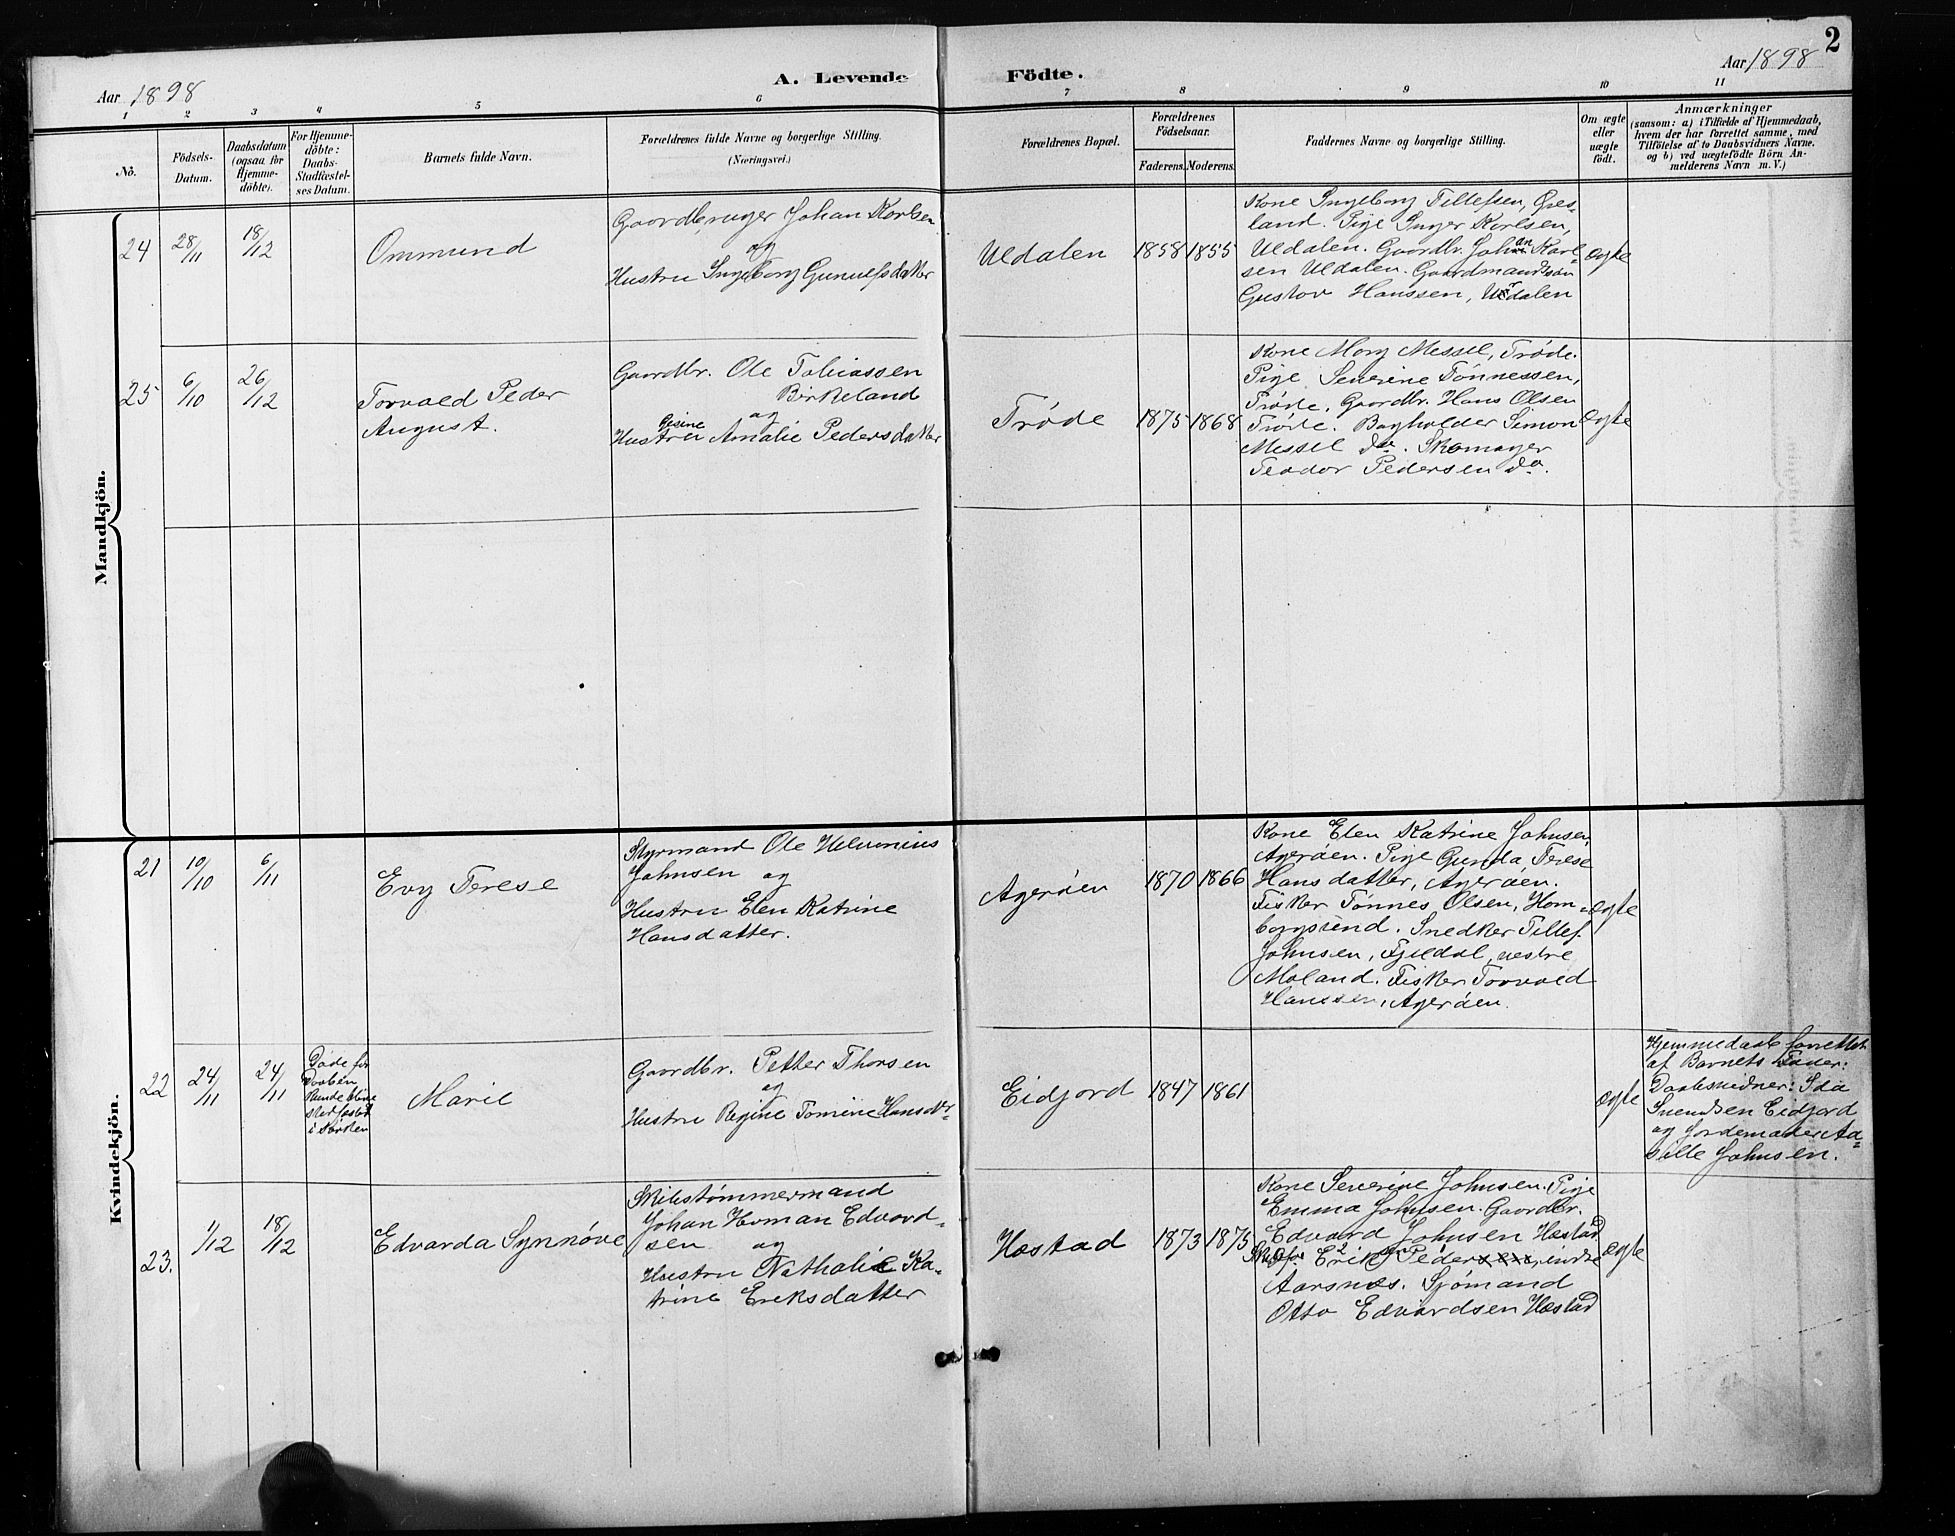 2
Aar 1898
A. Levende Födte.
Aar 1898
1 2 3 4 5 6 7 8 9 10 11
No.
Födsels-
Datum.
Daabsdatum
(ogsaa for
Hjemme-
döbte).
For Hjemme-
döbte:
Daabs-
Stadfæstel-
ses Datum.
Barnets fulde Navn.
Forældrenes fulde Navne og borgerlige Stilling.
(Næringsvei.)
Forældrenes Bopæl.
Forældrenes
Födselsaar.
Faderens. Moderens.
Faddernes Navne og borgerlige Stilling.
Om ægte
eller
uægte
født.
Anmærkninger
(saasom: a) i Tilfælde af Hjemmedaab,
hvem der har forrettet samme, med
Tilföielse af to Daabsvidners Navne,
og b) ved uægtefödte Börn An-
melderens Navn m. V.)
Mandkjön.
24
28/11
18/12
Ommund
Gaardbruger Johan Karlsen
og
Hustru Ingeborg Gunulfsdatter
Uldalen
1858
1855
Kone Ingeborg Tellefsen, Øres-
land. Pige Inger Karlsen,
Uldalen. Gaardbr. Johan Karl-
sen Uldalen. Gaardmandssøn
Gustav Hanssen, Uldalen
ægte
25
6/10
26/12
Torvald Peder
August.
Gaardbr. Ole Tobiassen
Birkeland
og
Gisine
Hustru Amalie Pedersdatter
Trøde
1875
1868
Kone Mary Messel, Trøde.
Pige Severine Tønnessen,
Trøde. Gaardbr. Hans Olsen
Trøde. Bogholder Simon
Messel do. Skomager
Teodor Pedersen do.
ægte
Kvindekjön.
21
10/10
6/11
Evy Terese
Styrmand Ole Helmenius
Johnsen og
Hustru Elen Katrine
Hansdatter.
Agerøen
1870
1866
Kone Elen Katrine Johnsen,
Agerøen. Pige Gunda Terese
Hansdatter, Agerøen.
Fisker Tønnes Olsen, Hom-
borgsund. Snedker Tellef
Johnsen, Fjeldal, vestre
Moland. Fisker Torvald
Hanssen, Agerøen.
ægte
22
24/11
24/11
Døde før
Daaben
kunde blive
stadfæstet
i Kirken
Marie
Gaardbr. Petter Thorsen
og
Hustru Regine Tomine Hansdtr
Eidjord
1847
1861
ægte
Hjemmedaab forrettet
af Barnets Fader:
Daabsvidner: Ida
Svendsen Eidjord
og Jordemoder Aa-
sille Johnsen.
23.
1/12
18/12
Edvarda Synnøve
Skibstømmermand
Johan Herman Edvard-
sen og
Hustru Nathalie Ka-
trine Eriksdatter
Hæstad
1873
1875
Kone Severine Johnsen. Pige
Emma Johnsen. Gaardbr.
Edvard Johnsen Hæstad
Erik Peder indre
Aarsnes. Sjømand
Otto Edvardsen Hæstad
ægte